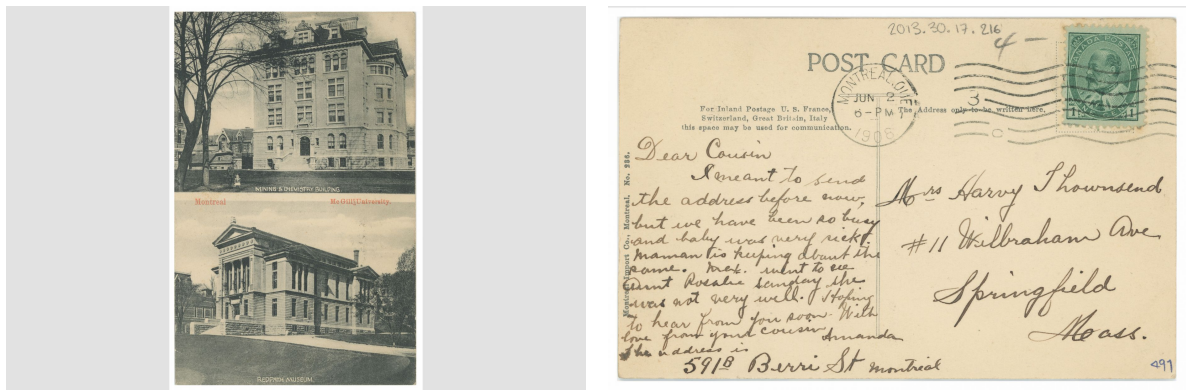 MINING & CHEMISTRY BUILDING.
Montreal McGill University.
REDPATH MUSEUM.
2013.30.17.216
4-
POST CARD
MONTREAL, QUE.
JUN 2
6-PM
1908
3
CANADA POSTAGE
1 1
For Inland Postage U. S. France,
Switzerland, Great Britain, Italy
this space may be used for communication.
The Address only to be written here.
Montreal Import Co., Montreal. No. 926.
Dear Cousin
I meant to send
the address before now,
but we have been so busy
and baby was very sick.
Maman tis keeping about the
same. went to see
Aunt Rosalie sunday she
was not very well. Hoping
to hear from you soon. With
love from your cousin
Amanda
The address is
591B Berri St Montreal
Mrs Harvy Thownsend
#11 Wilbraham Ave
Springfield
Mass.
497